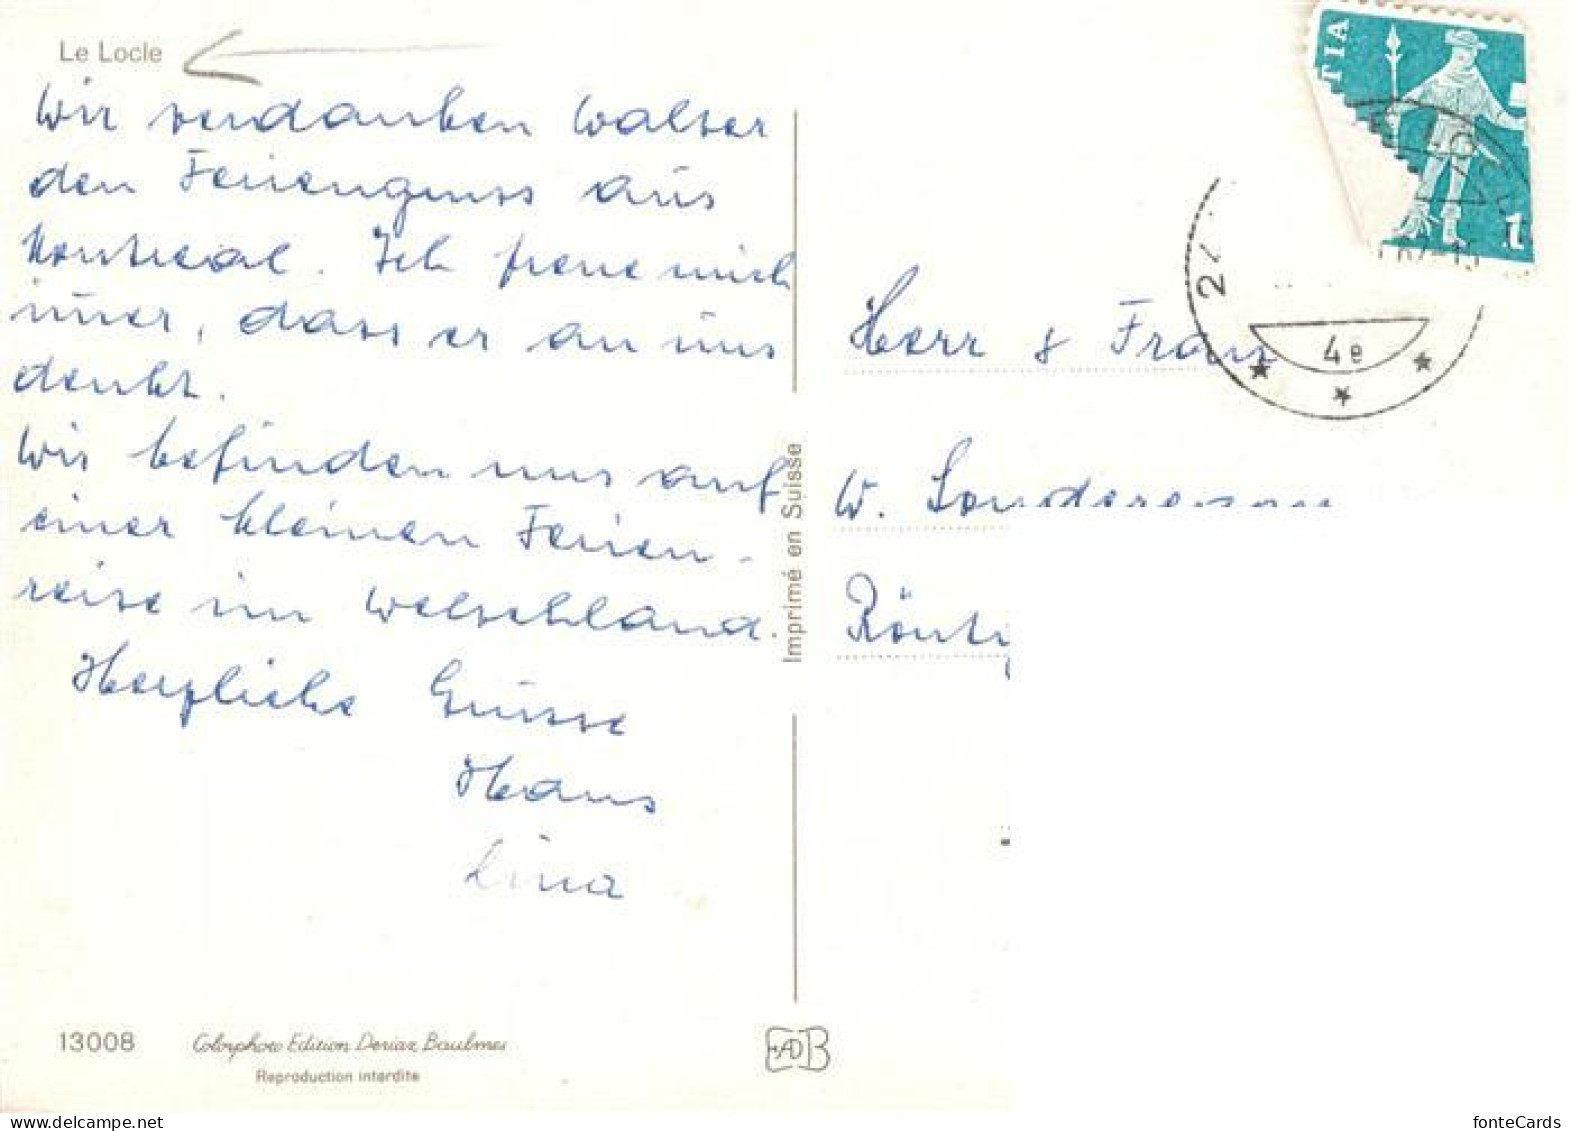 Le Locle
Wir verdanken Walter
den Feriengruss aus
Montreal. Ich freue mich
immer, dass er an uns
denkt.
Wir befinden uns auf
einer kleinen Ferien-
reise im Welschland.
Herzliche Grüsse
Hans
Lina
13008
Colorphoto Edition Deriaz Baulmes
Reproduction interdite
Imprimé en Suisse
TIA
1
2
4e
Herr & Frau
W.
Rönt
fonteCards